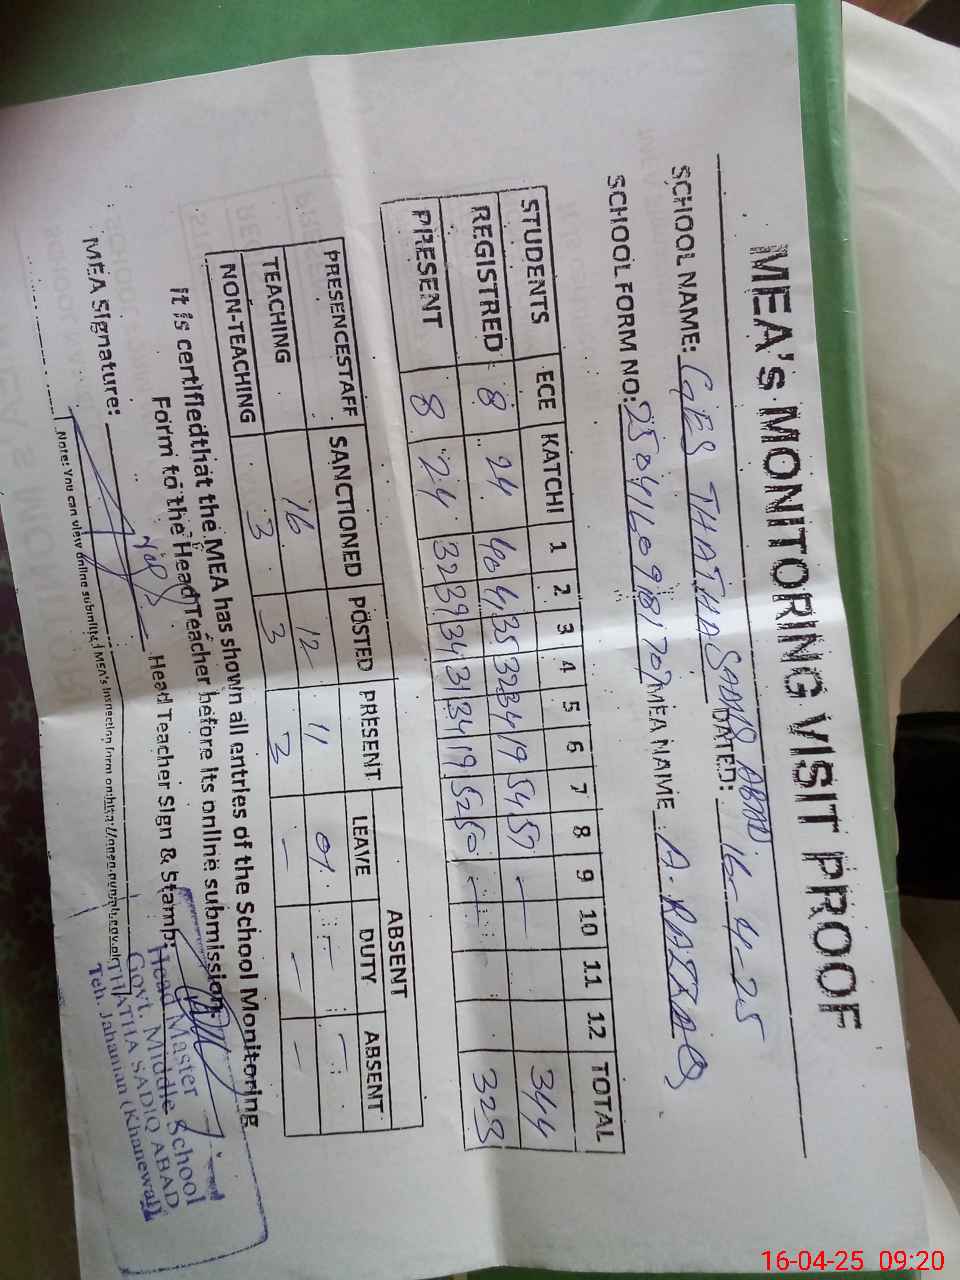 MEA's MONITORING VISIT PROOF
SCHOOL NAME: GES THATHA SADIQ ABAD. DATED: 16-4-25
SCHOOL FORM NO: MEA NAME A. RAZZAQ
STUDENTS ECE KATCHI 1 2 3 4 5 6 7 8 9 10 11 12 TOTAL
REGISTRED 8 24 40 41 35 32 34 19 54 57 — 344
PRESENT 8 24 32 39 34 31 34 19 52 50 — 323
PRESENCESTAFF SANCTIONED POSTED PRESENT ABSENT
LEAVE DUTY ABSENT
TEACHING 16 12 11 01 — —
NON-TEACHING 3 3 3 — — —
it is certifiedthat the MEA has shown all entries of the School Monitoring
Form to the Head Teacher before its online submission.
MEA Signature: Head Teacher Sign & Stamp:
Head Master
Govt. Middle School
THATHA SADIQ ABAD
Teh. Jahanian (Khanewal)
Note: You can view online submitted MEA's inspection form on:http://open.punjab.gov.pk
16-04-25 09:20